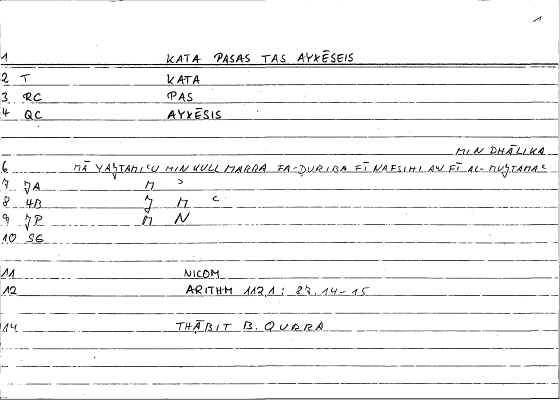 1
1 KATA PASAS TAS AYXĒSEIS
2 T KATA
3 RC PAS
4 QC AYXĒSIS
MIN DHĀLIKA
6 MĀ YAǦTAMIʿU MIN KULL MARRA FA-ḌURIBA FĪ NAFSIHI AW FĪ AL-MUǦTAMAʿ
7 ǦA M ʾ
8 4B Ǧ M ʿ
9 ǦP M N
10 SG
11 NICOM
12 ARITHM 112,1 : 87.14-15
14 THĀBIT B. QURRA